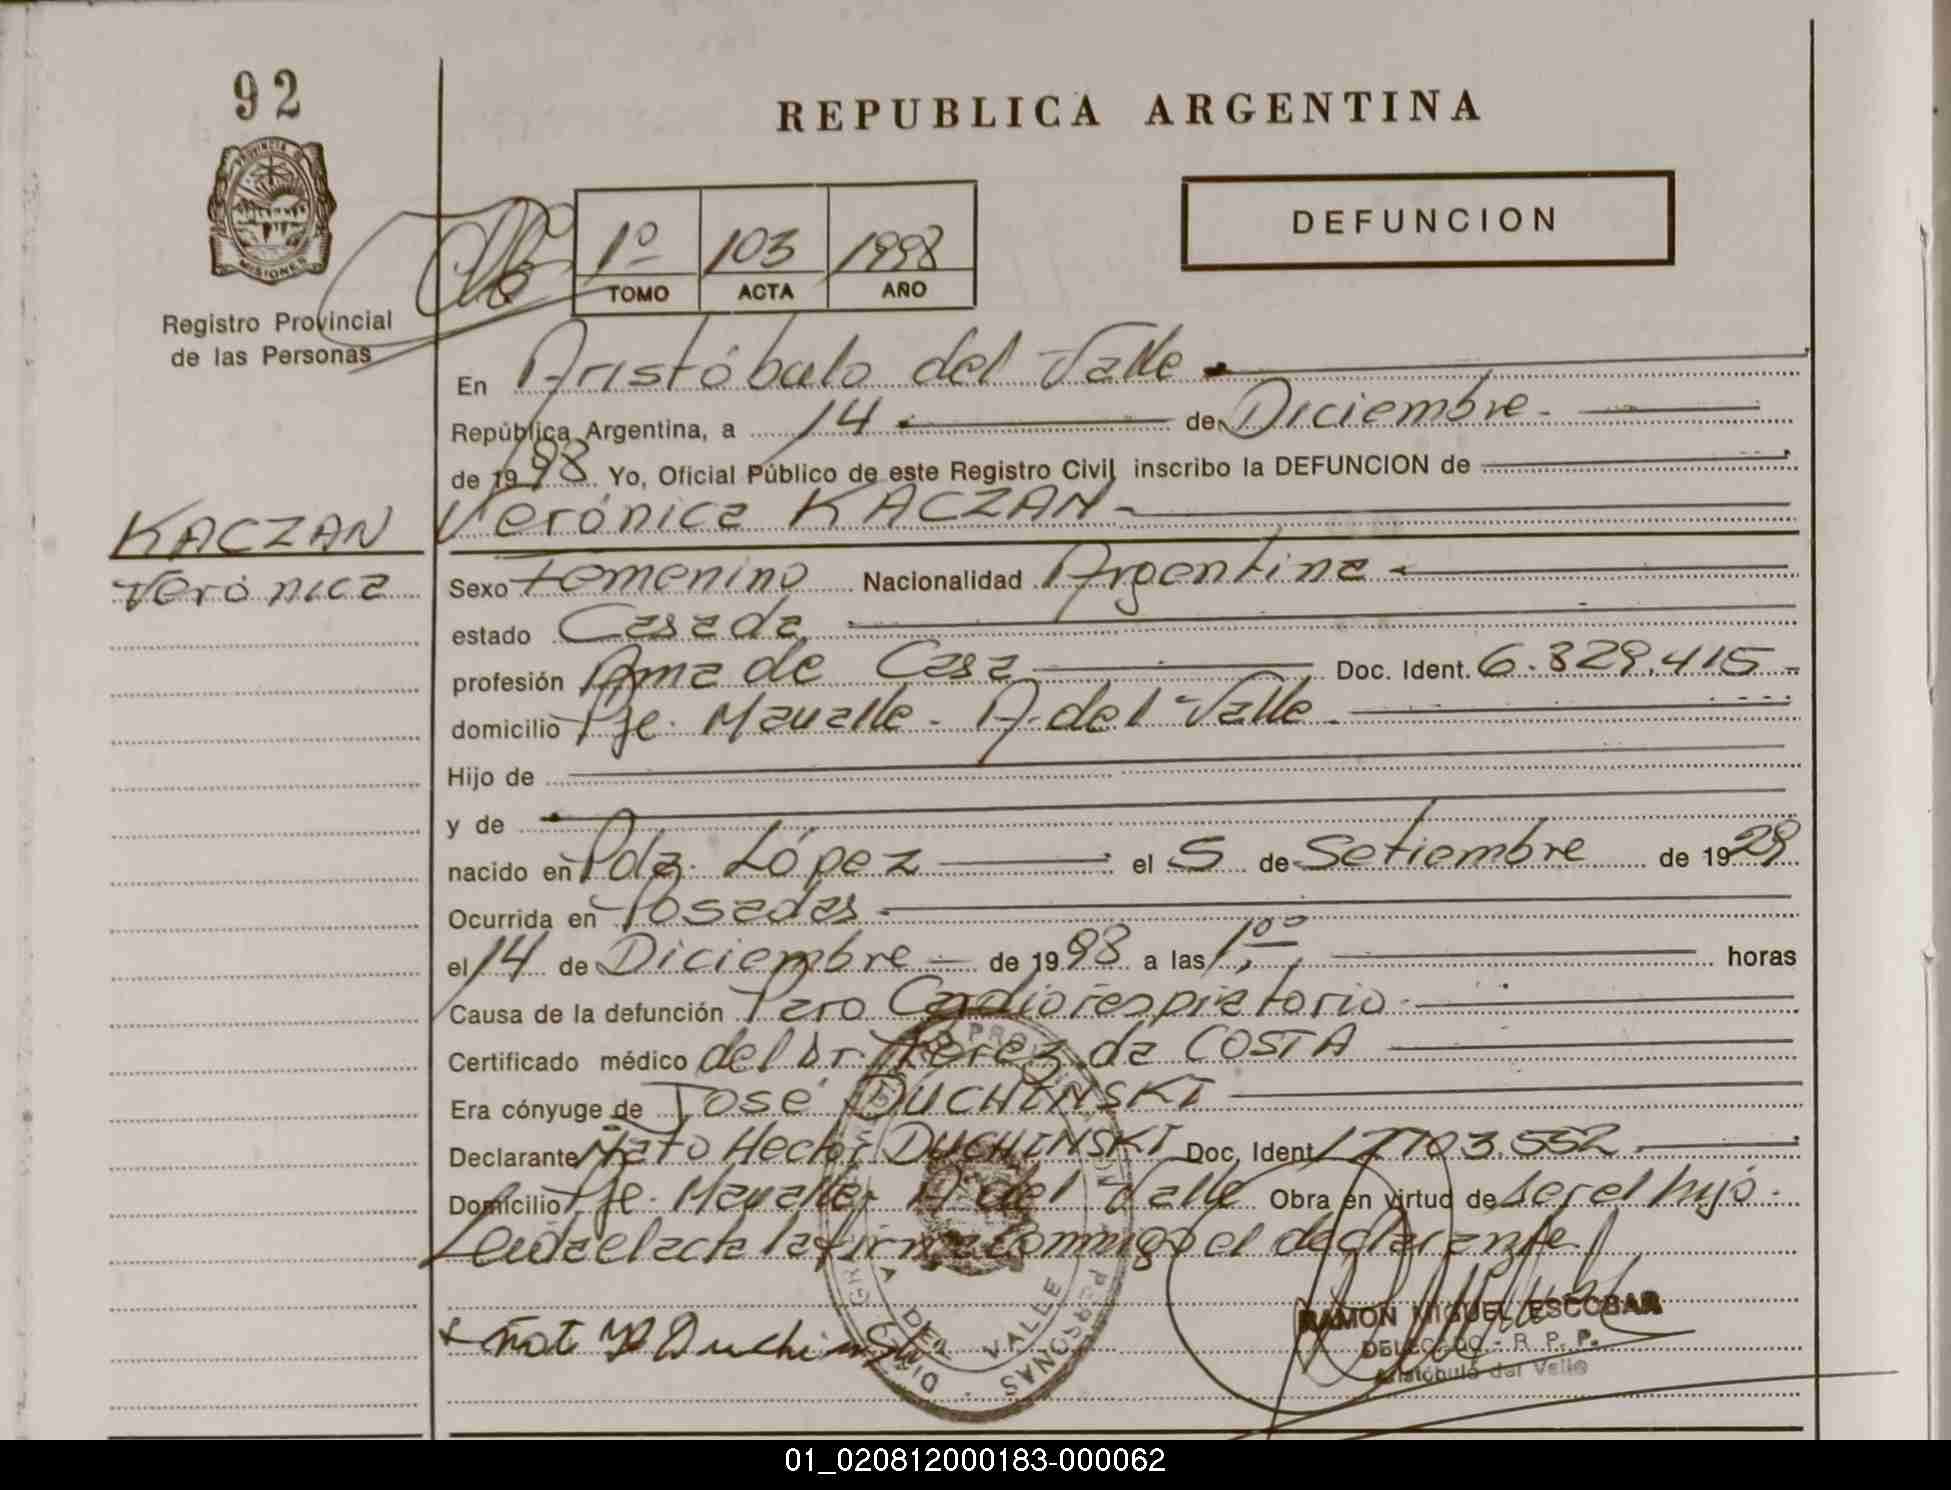 92
REPUBLICA ARGENTINA
PROVINCIA DE
MISIONES
Registro Provincial
de las Personas
1º 103 1998
TOMO ACTA AÑO
DEFUNCION
En Aristóbulo del Valle
República Argentina, a 14 de Diciembre
de 1998 Yo, Oficial Público de este Registro Civil inscribo la DEFUNCION de
KACZAN
Verónica
Verónica KACZAN
Sexo Femenino Nacionalidad Argentina
estado Casada
profesión Ama de Casa Doc. Ident. 6.829.415
domicilio Pje. Mavalle - A. del Valle
Hijo de
y de
nacido en Pda. López el 5 de Setiembre de 1929
Ocurrida en Posadas
el 14 de Diciembre de 1998 a las 1,00 horas
Causa de la defunción Paro Cardiorespiratorio
Certificado médico del Dr. Perez da COSTA
Era cónyuge de José DUCHINSKI
Declarante Hector DUCHINSKI Doc. Ident 17703.552
Domicilio Pje. Mavalle, A del Valle Obra en virtud de ser el hijo.
Leida el acta la firma conmigo el declarante
Duchinski
RAMON MIGUEL ESCOBAR
DELEGADO - R. P. P.
Aristóbulo del Valle
DEL VALLE
PERSONAS
01_020812000183-000062